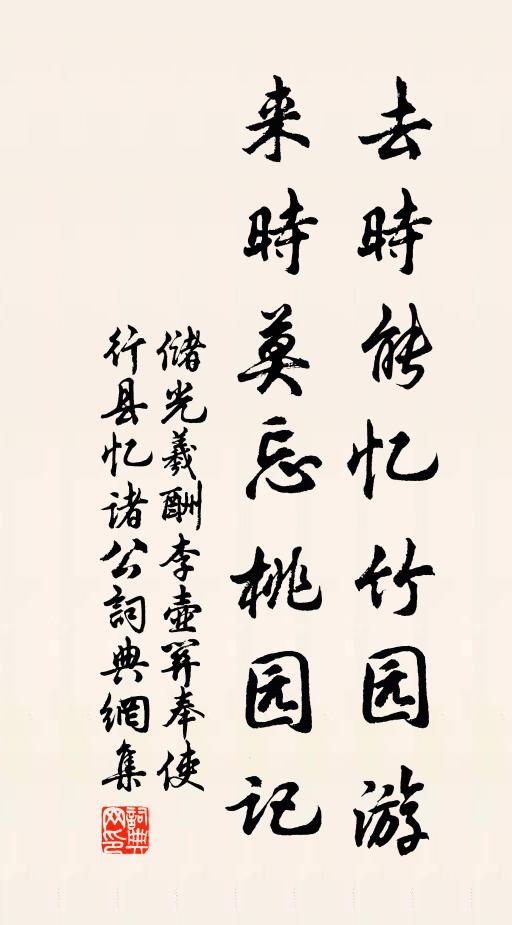 去時能忆竹园游
来時莫忘桃园记
储光羲酬李壶关奉使
行县忆诸公詞典網集
詞典网印